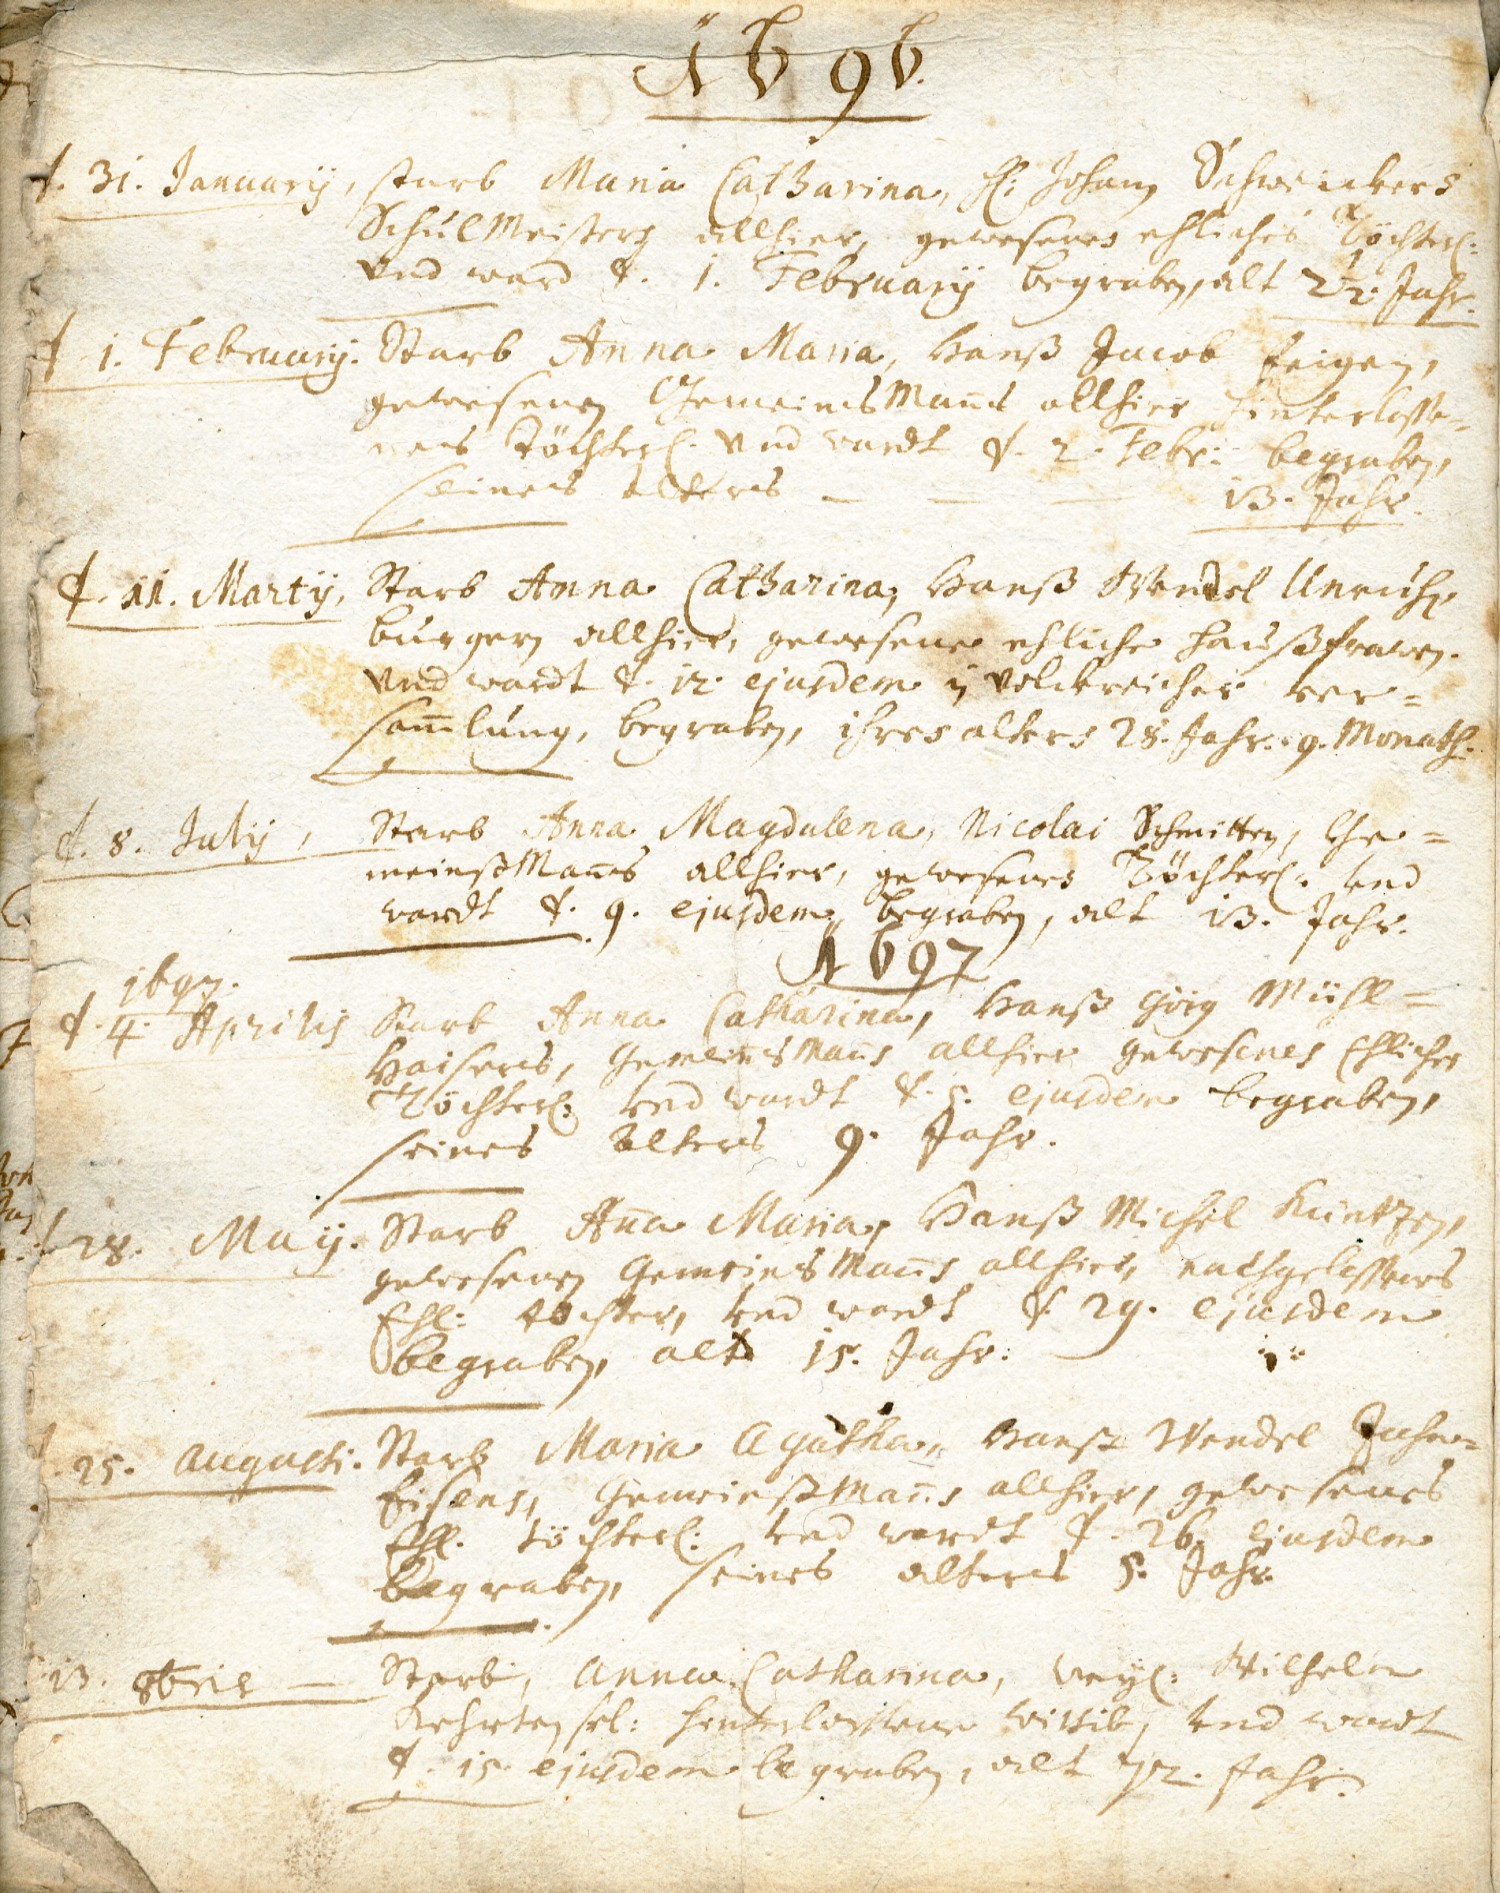 1696.
d. 31. Januarij, starb Maria Catharina, H: Johann Schweickers
SchulMeisters allhier, gewesenes ehliches Töchterl:
Und ward d. 1. Februarij begraben, alt 2 1/2. Jahr.
d. 1. Februarij. Starb Anna Maria, Hanß Jacob Feigen,
gewesenen GemeinsManns allhier hinterlasse-
nes Töchterl. Und wardt d. 2. Febr: begraben,
seines alters — — — 13. Jahr.
d. 11. Martij, Starb Anna Catharina, Hanß Wendel Unruh,
burgers allhier, gewesene ehliche haußfrawen.
Und wardt d. 12. ejusdem in Volckreicher ver=
samlung, begraben, ihres alters 28. Jahr. 9. Monath.
d. 8. Julij, Starb Anna Magdalena, Nicolai Schmitten, Ge=
meinßManns allhier, gewesenes Töchterl: und
wardt d. 9. ejusdem begraben, alt 13. Jahr.
1697
1697.
d. 4. Aprilis Starb Anna Catharina, Hanß Görg Mühl=
haisers, GemeinsManns allhier gewesenes Ehliches
Töchterl: und wardt d. 5. ejusdem begraben,
seines alters 9. Jahr.
d. 28. Maij. Starb Anna Maria, Hanß Michel Kuntzen,
gewesenen GemeinsManns allhier, nachgelassenes
Ehl: tochter, und wardt d. 29. ejusdem
begraben, alt 15. Jahr.
25. Augusti. Starb Maria Agatha, Hanß Wendel
Eisens, GemeinßManns allhier, gewesenes
Ehl. töchterl: und wardt d. 26. ejusdem
begraben, seines alters 5. Jahr.
13. 8bris — Starb, Anna Catharina, weyl: Wilhelm
sel: hinterlassene wittib, und wardt
d. 15. ejusdem begraben, alt 72. Jahr.